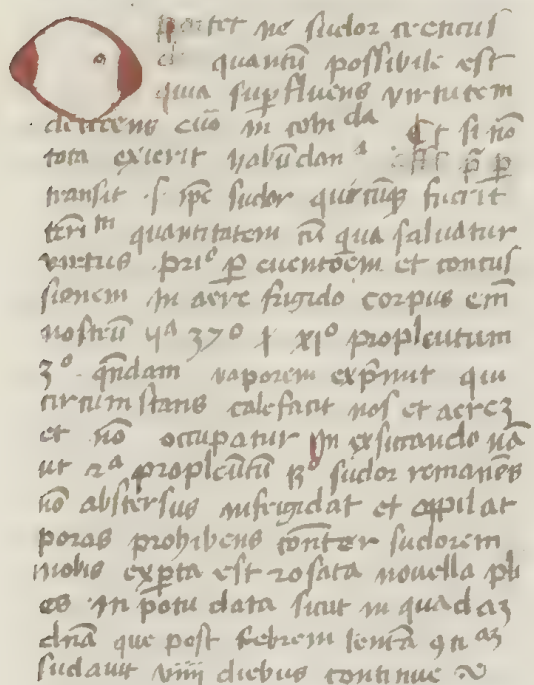 portet ne sudor creticus
quantū possibile est
quia supfluens virtutem
deiiciens cuō in com da Et si nō
tota exierit habūdan a
transit .s. ipē sudor quicūqꝫ fuerit
quantitatem cū qua saluatur
virtus priº ꝑ euentoēm et concus
sionem in aere frigido corpus em̄
nostrū qª 37º xiº propleutum
3º qn̄dam vaporem exp̄mit qui
circumstans calefacit nos et aereꝫ
et nō occupatur in exsiccando nā
ut 2ª propleūtū sudor remanēs
nō abstersus infrigidat et oppilat
poros prohibens con̄ter sudorem
nobis exꝑta est rosata nouella pli
es in potu data sicut in quadaꝫ
dn̄a que post febrem
sudauit viiii diebus continue